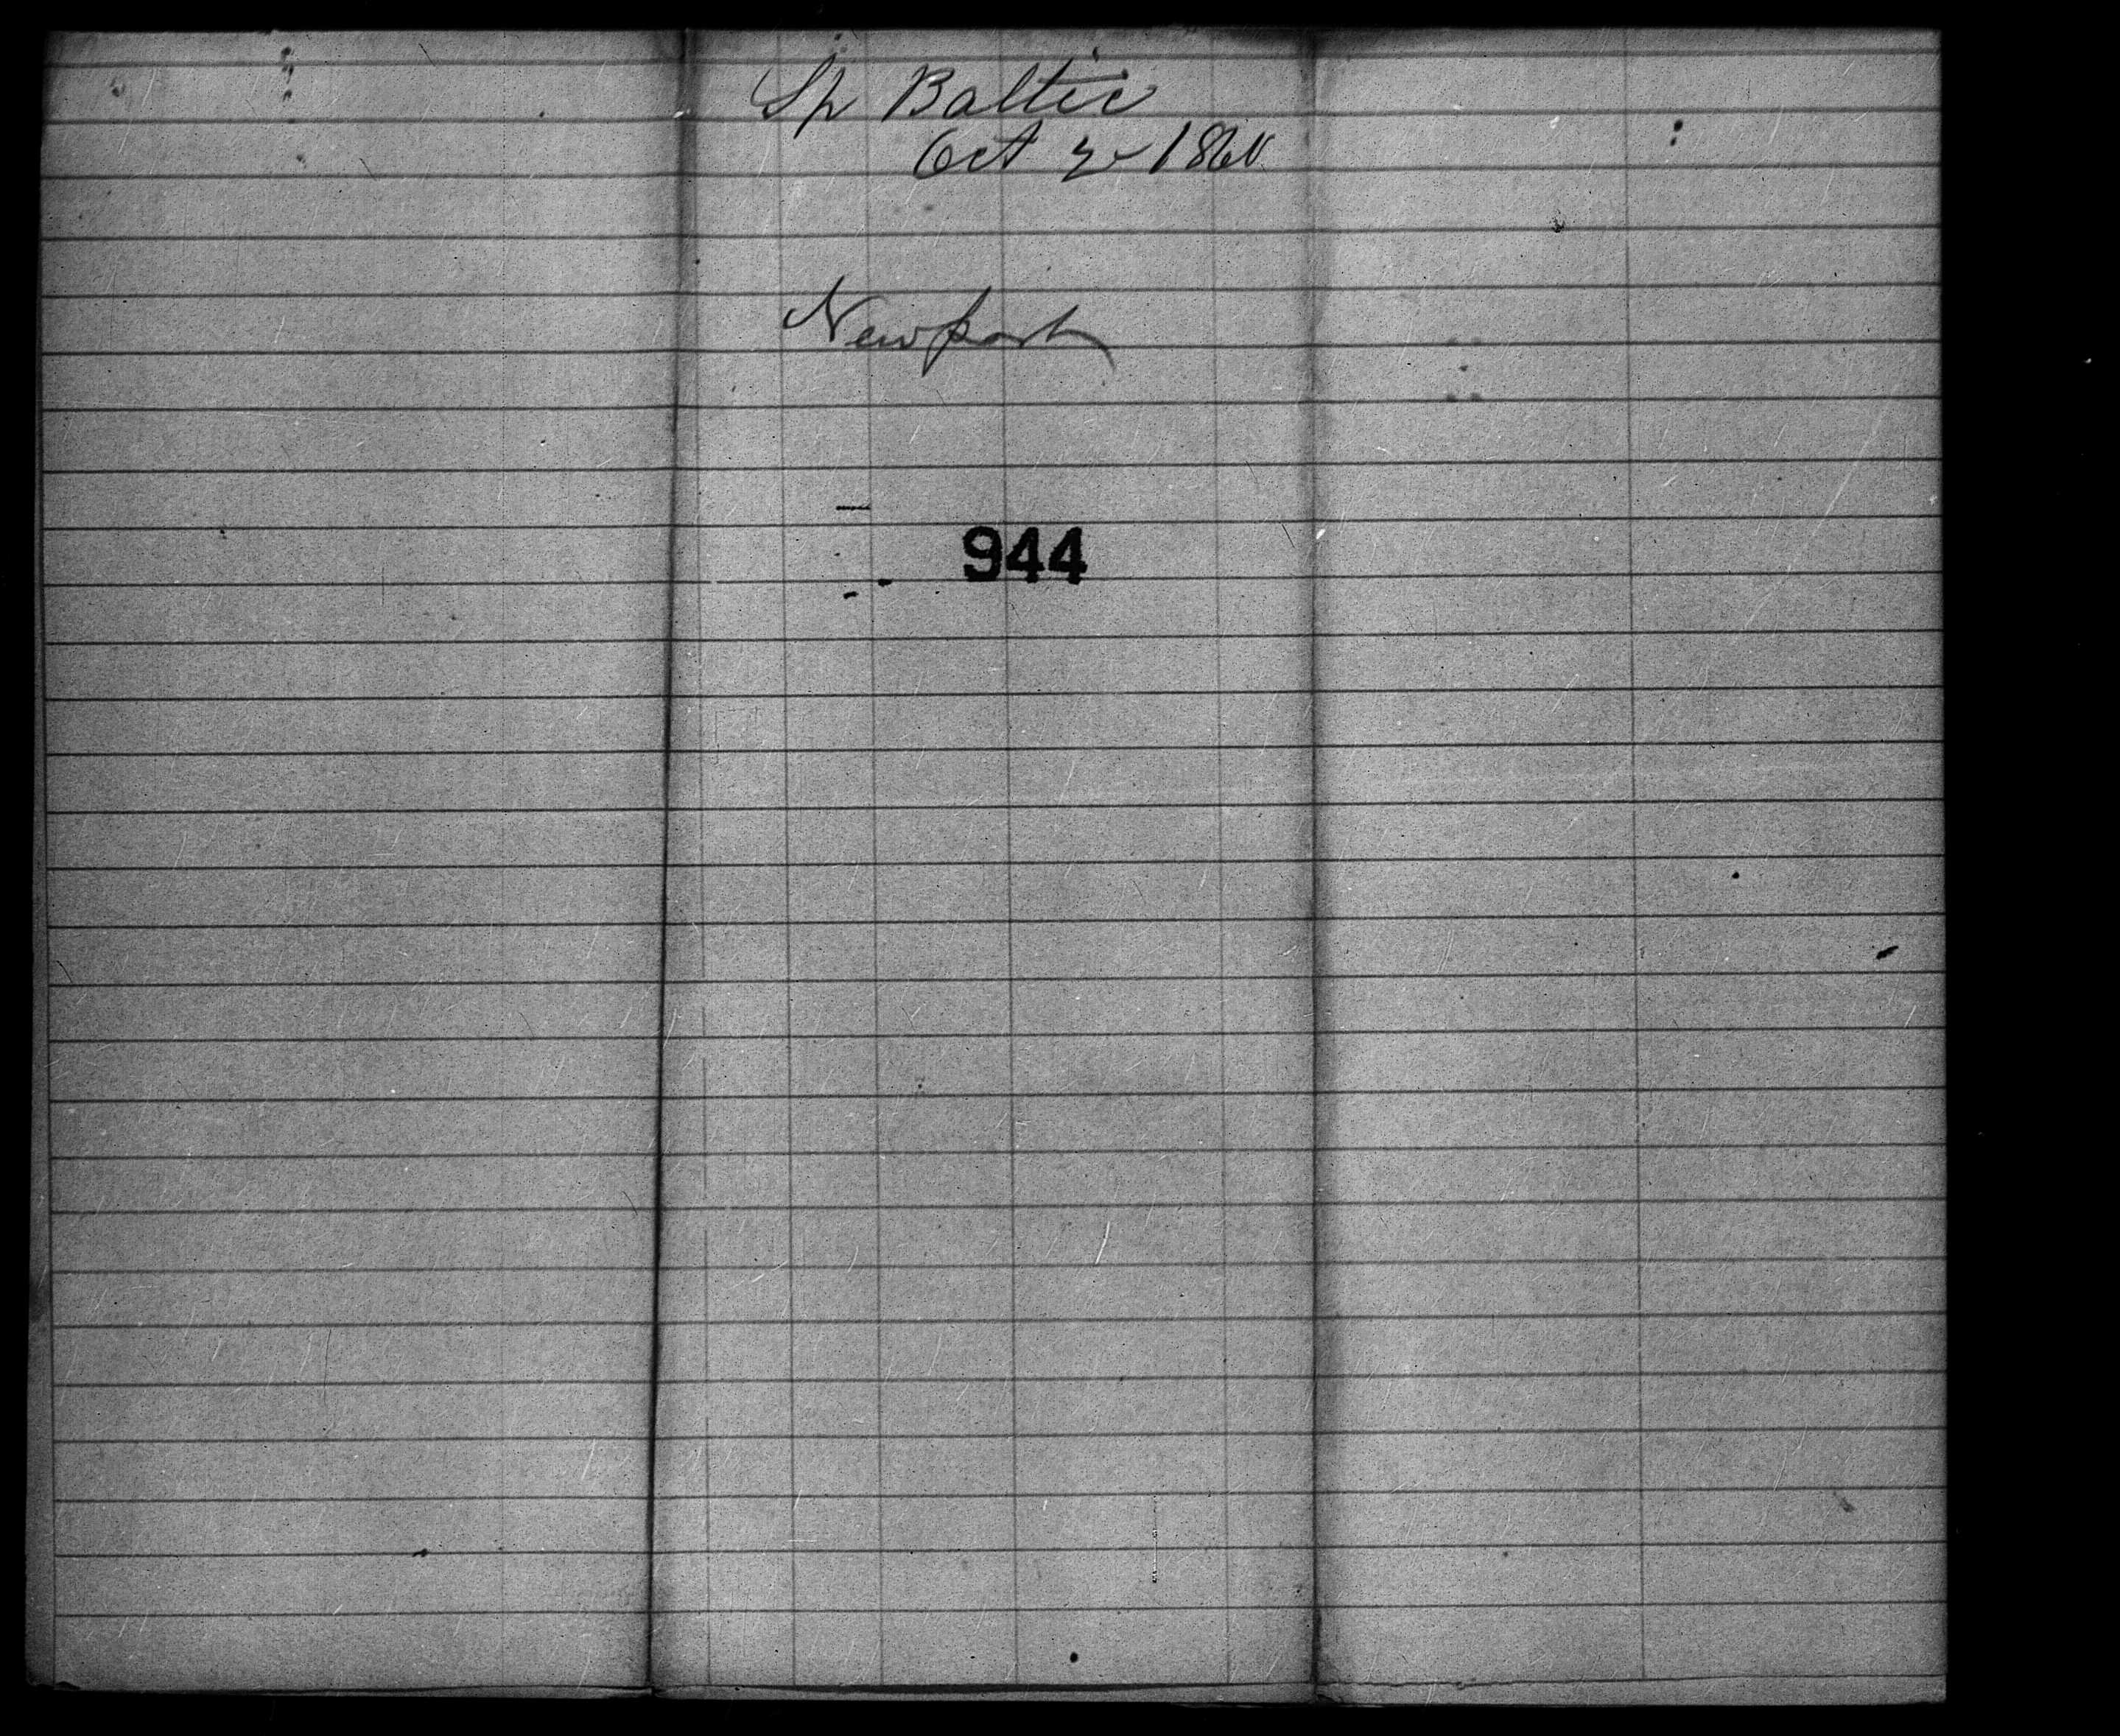 Sp Baltic
Oct 2 1860
Newport
944